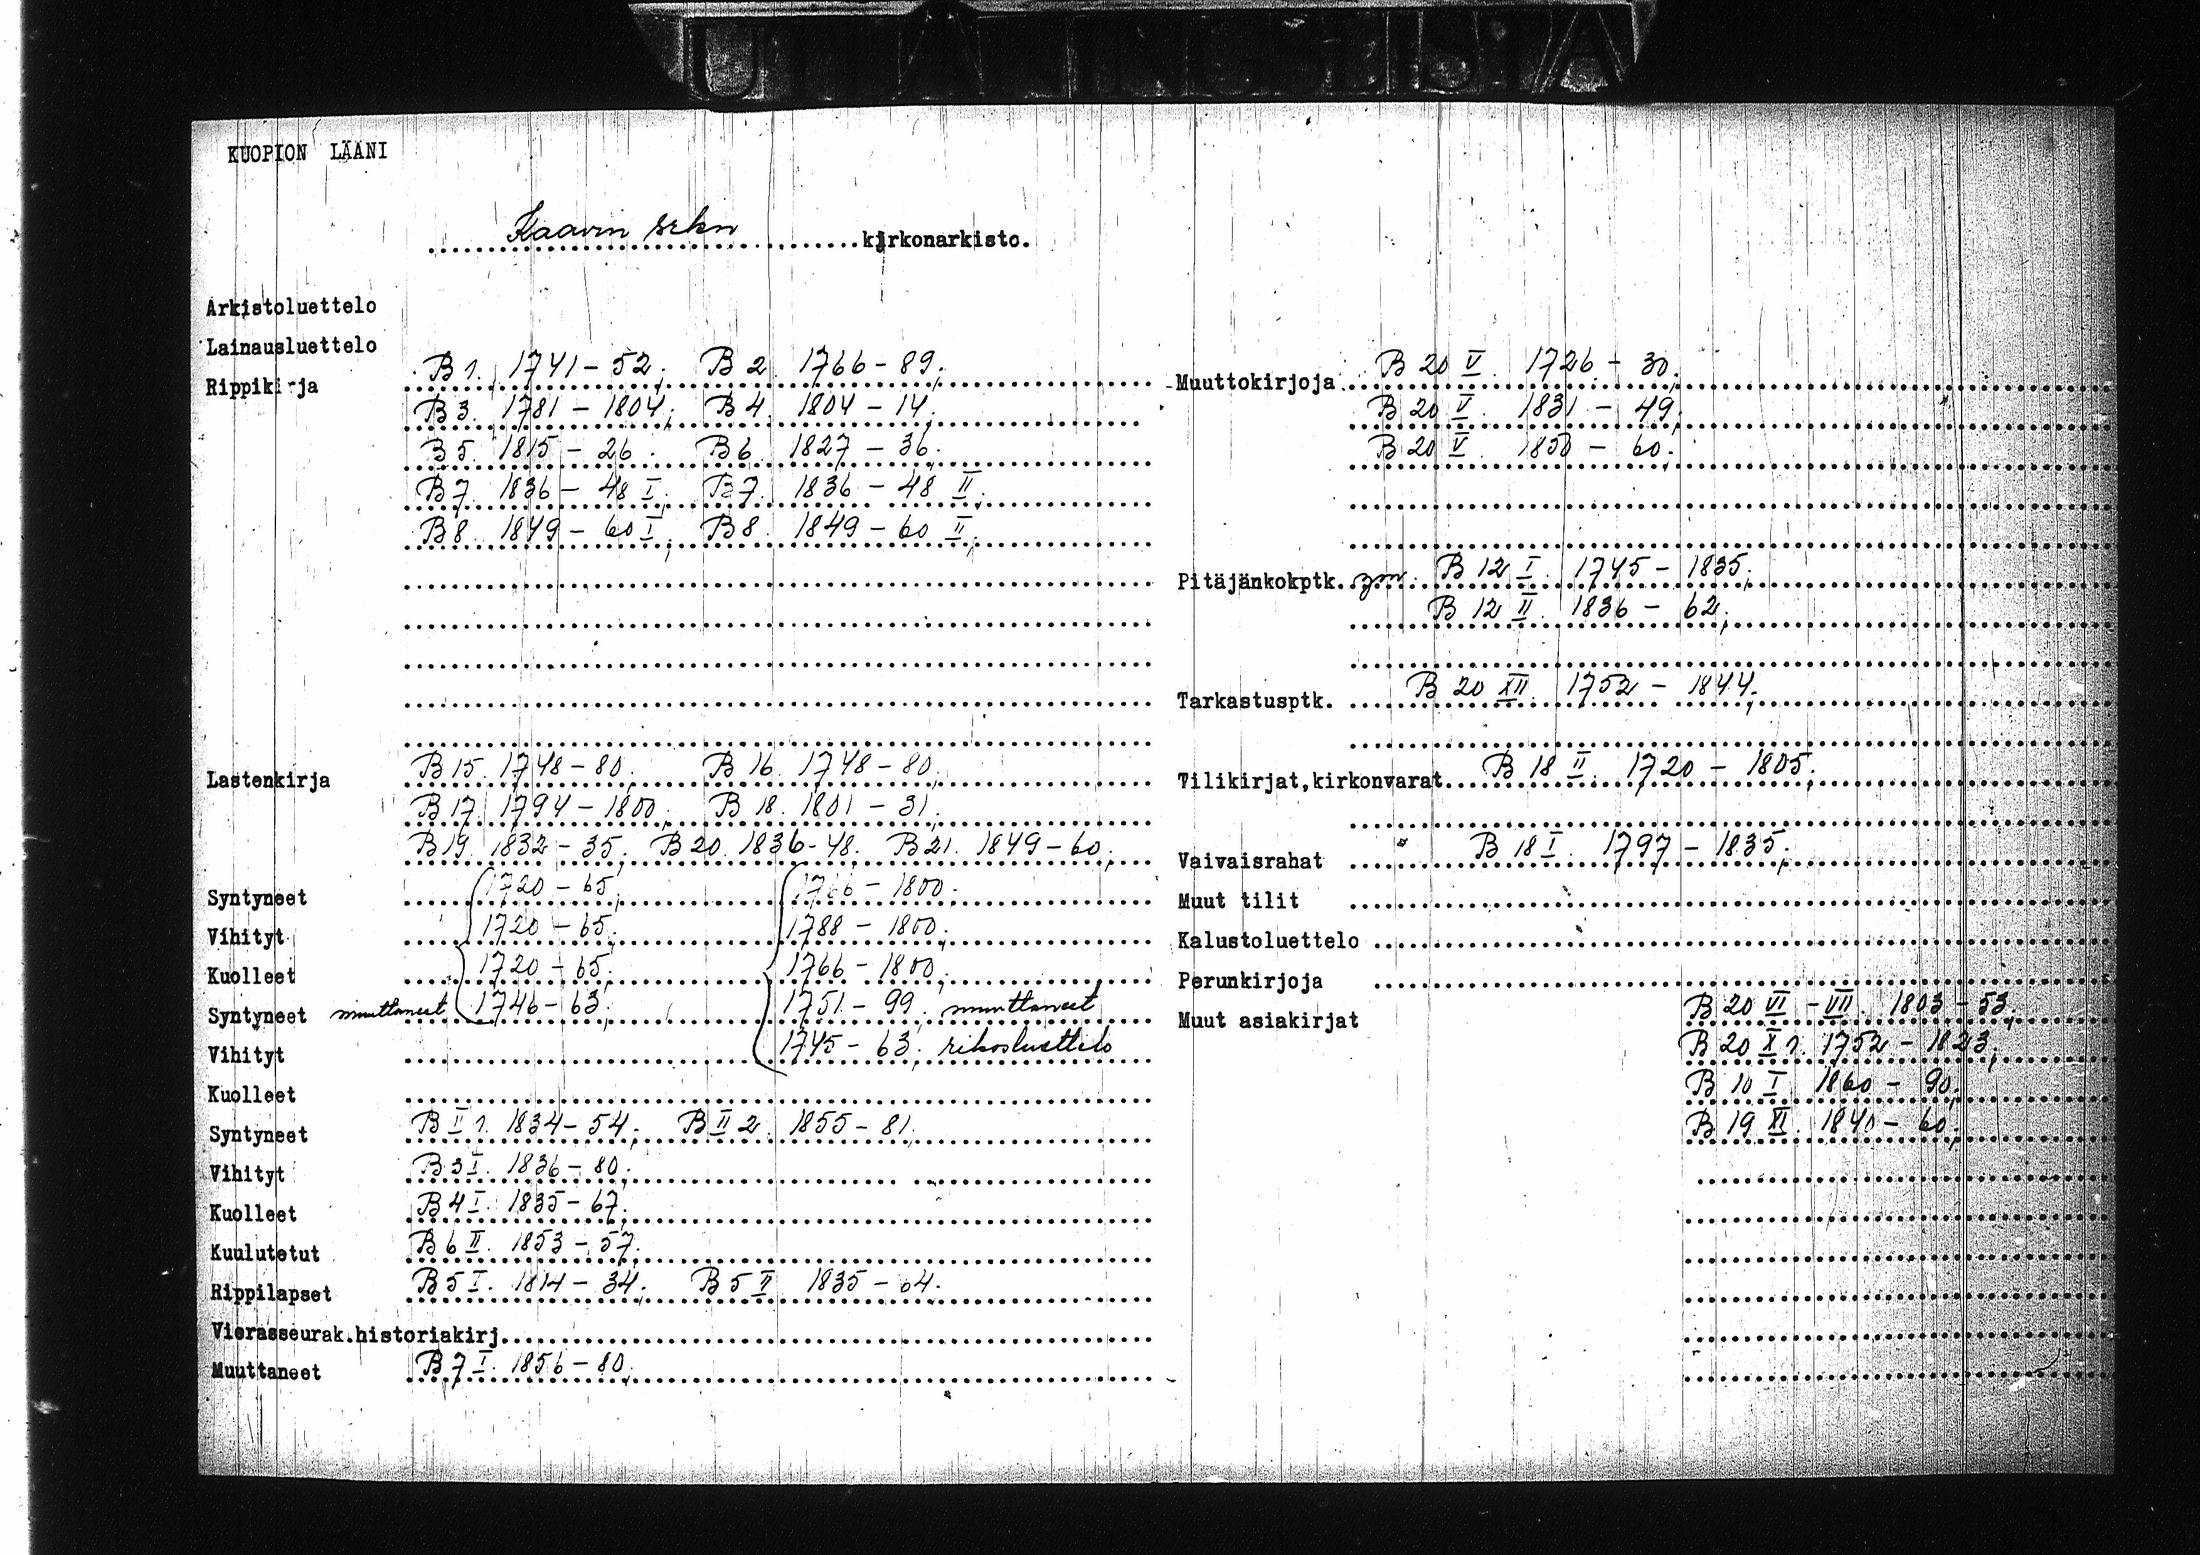 KUOPION LÄÄNI
Kaavin srkn kirkonarkisto.
Arkistoluettelo
Lainausluettelo
Rippikirja B 1. 1741-52, B 2. 1766-89,
B 3. 1781-1804, B 4. 1804-14.
B 5. 1815-26. B 6. 1827-36.
B 7. 1836-48 I, B 7. 1836-48 II,
B 8. 1849-60 I, B 8. 1849-60 II,
Lastenkirja B 15. 1748-80, B 16. 1748-80,
B 17. 1794-1800, B 18. 1801-31,
B 19. 1832-35, B 20. 1836-48. B 21. 1849-60,
Syntyneet 1720-65, 1766-1800.
Vihityt 1720-65, 1788-1800,
Kuolleet 1720-65, 1766-1800,
Syntyneet muuttaneet 1746-63, 1751-99. muuttaneet
Vihityt 1745-63, rikosluettelo
Kuolleet
Syntyneet B II 1. 1834-54, B II 2. 1855-81.
Vihityt B 3 I. 1836-80,
Kuolleet B 4 I. 1835-67.
Kuulutetut B 6 II. 1853-57.
Rippilapset B 5 I. 1814-34, B 5 II 1835-64.
Vierasseurak.historiakirj.
Muuttaneet B 7 I. 1856-80.
Muuttokirjoja B 20 V. 1726-30,
B 20 V. 1831-49,
B 20 V. 1850-60,
Pitäjänkokptk. ym. B 12 I. 1745-1835,
B 12 II. 1836-62,
Tarkastusptk. B 20 XII. 1752-1844,
Tilikirjat,kirkonvarat B 18 II. 1720-1805,
Vaivaisrahat " B 18 I. 1797-1835,
Muut tilit
Kalustoluettelo
Perunkirjoja
Muut asiakirjat B 20 VI-VII. 1803-53,
B 20 X 1. 1752-1823,
B 10 I. 1860-90,
B 19 XI. 1840-60,